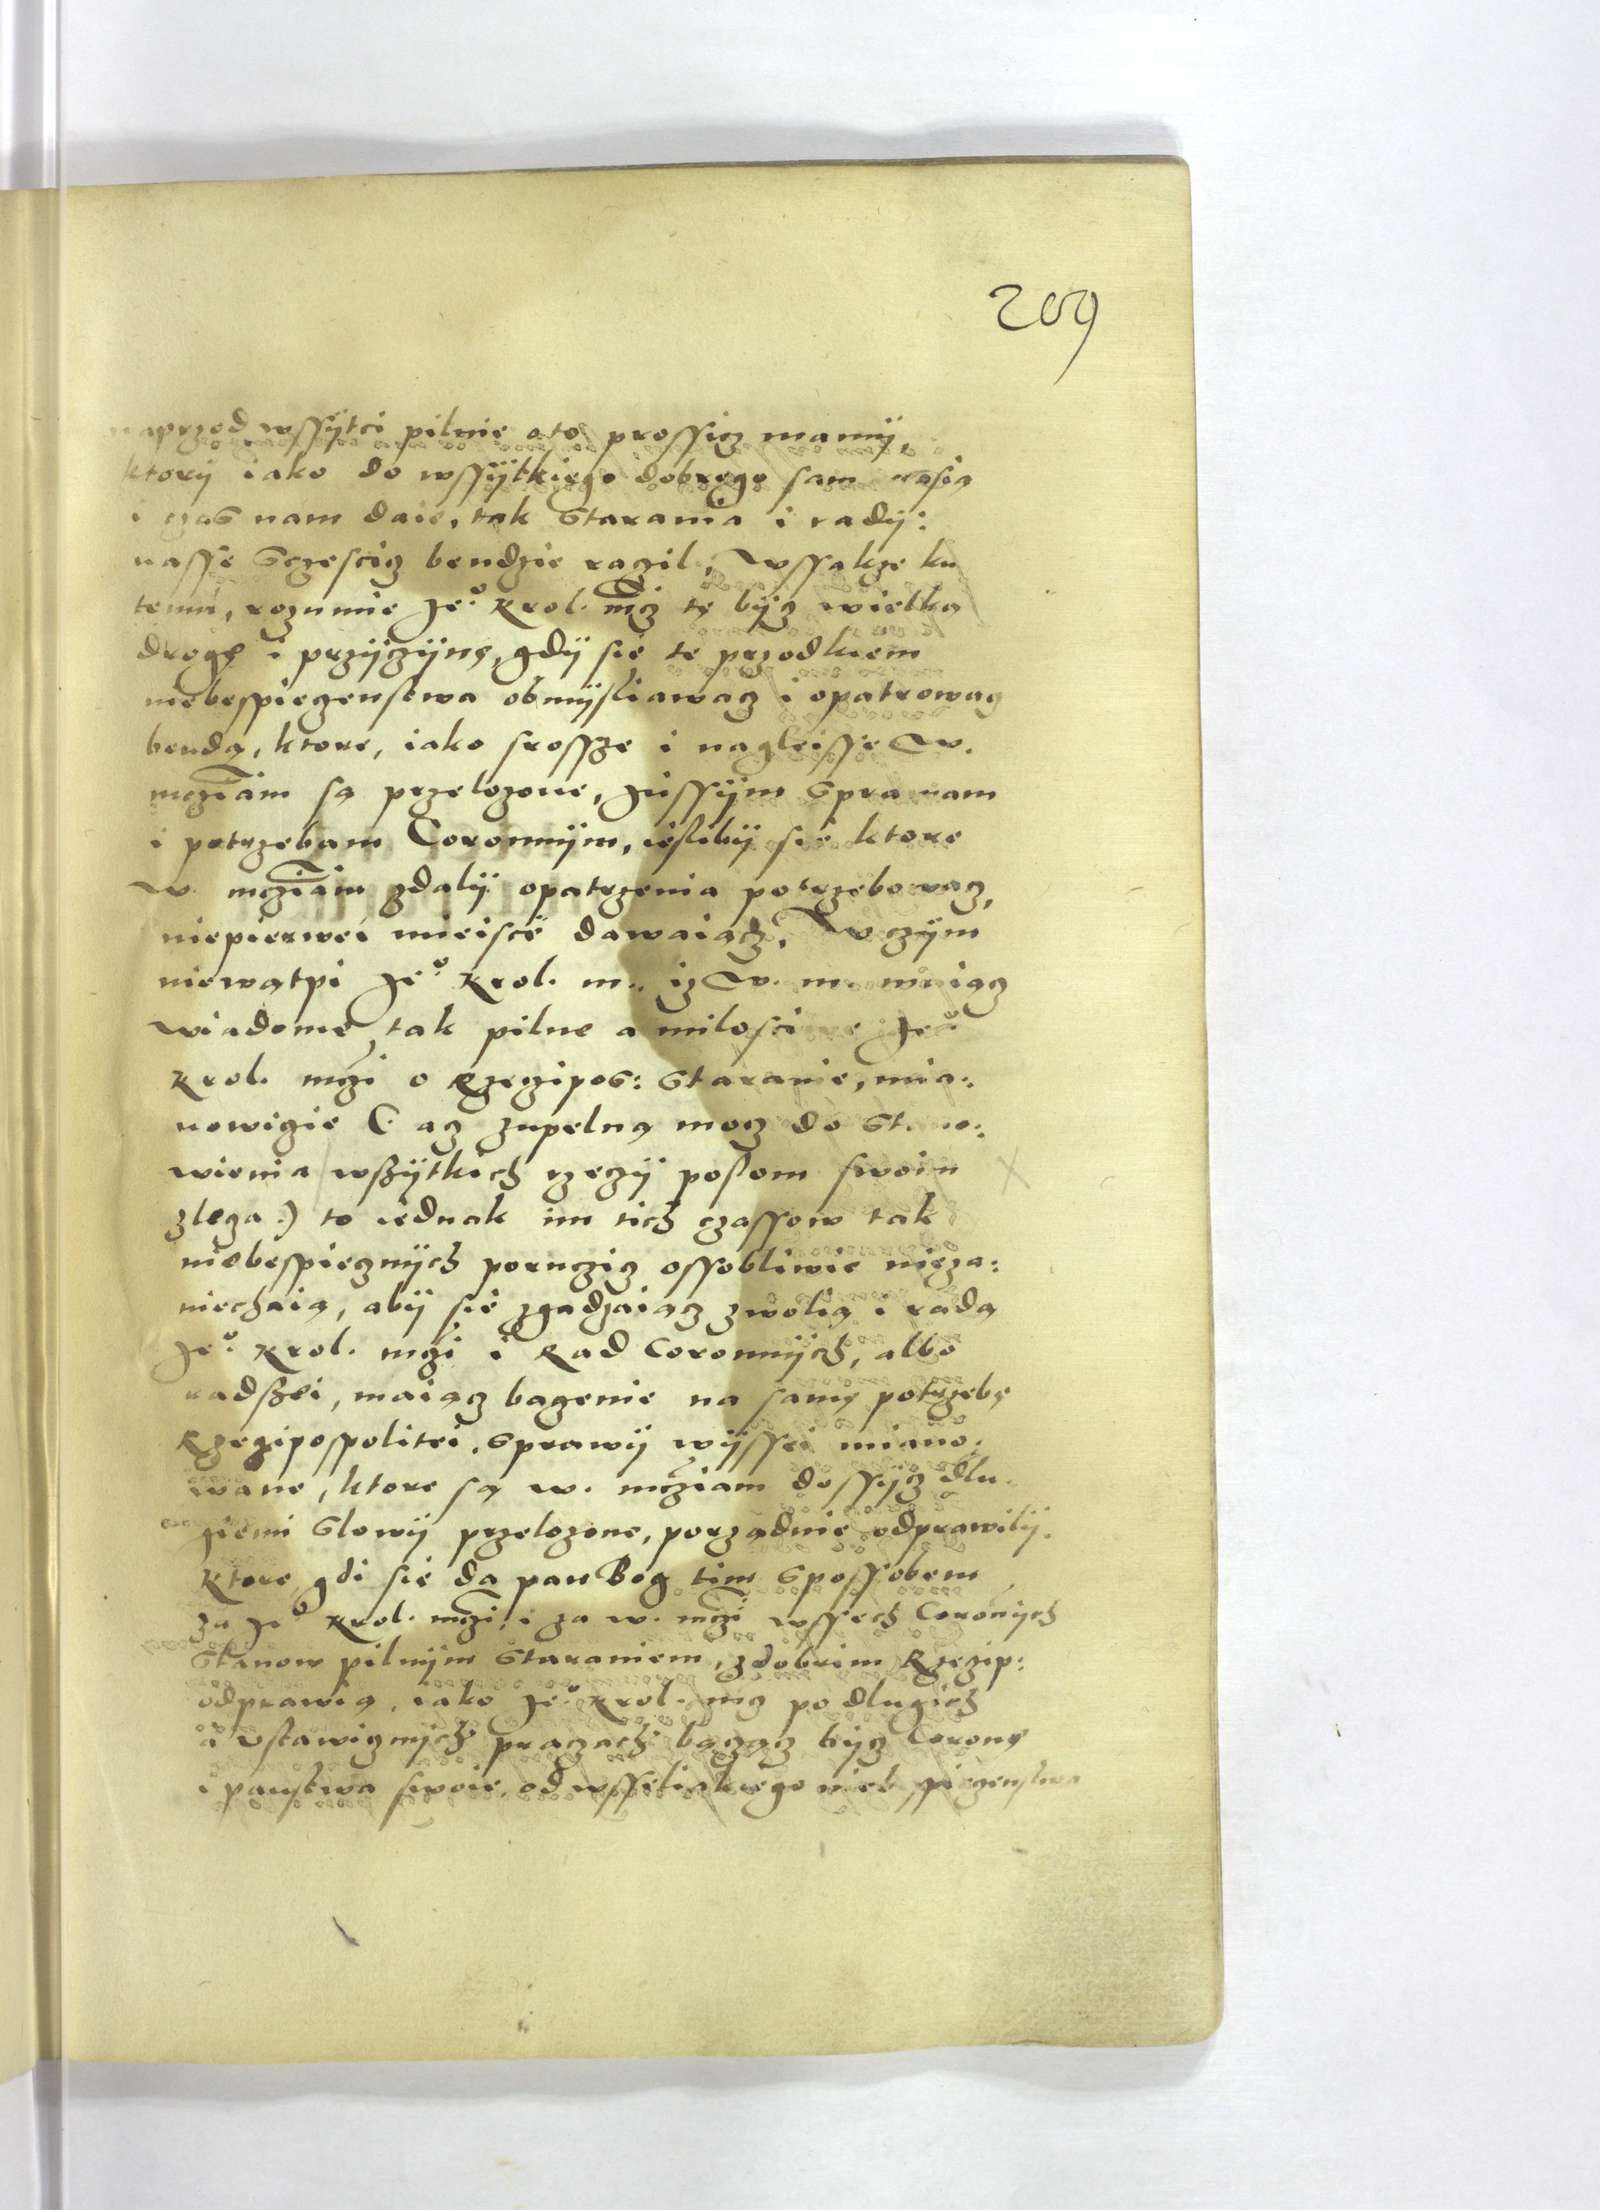 209
naprzod wssÿtci pilnie o to prossicz mamÿ,
ktorÿ iako do wssÿtkiego dobrego sam
i czas nam daie, tak starania i radÿ:
nasse sczescicz bendzie raczil, Wssakze ku
temu, rozumie Je° Krol. mcz tę bÿcz wielką
drogę i przÿczÿnę, gdÿ się te przodkiem
niebespieczenstwa obmÿsliawacz i opatrowacz
bendą, ktore, iako srossze i nagleisse W.
mcziam są przelozone, Jnssÿm sprawam
i potrzebam Coronnÿm, iesłibÿ się ktore
w. mcziam zdalÿ opatrzenia potrzebowacz,
niepierwei mieisce dawaiącz, W czÿm
niewątpi Je° Krol. m. iz W. m. maiącz
wiadome, tak pilne a milosciwe Je°
Krol. mczi o Rzeczipos: staranie, mia:
nowiczie (acz zupelną mocz do stano:
wienia wszÿtkich rzeczÿ posłom swoim
zleca:) to iednak im tich czassow tak
niebespiecznÿch poruczicz ossobliwie nieza:
niechaią, abÿ się zgadzaiącz z wolią i radą
Je° Krol. mczi i Rad Coronnÿch, albo
radszei, maiącz baczenie na samę potrzebę
Rzeczipospolitei, sprawÿ wÿssei miano:
wane, ktore są w. mcziam dossÿcz dlu
giemi slowÿ przelozone, porządnie odprawilÿ.
Ktore gdi się da pan Bog tim spossobem
za Je° Krol. mczi, i za w. mczi wssech Coronÿch
stanow pilnÿm staraniem, z dobrim Rzeczip:
odprawią, iako Je° Krol. mcz po dlugich
a ustawicznÿch praczach baczącz bÿcz Coronę
i panstwa swoie, od wsseliakiego niebespieczenstwa